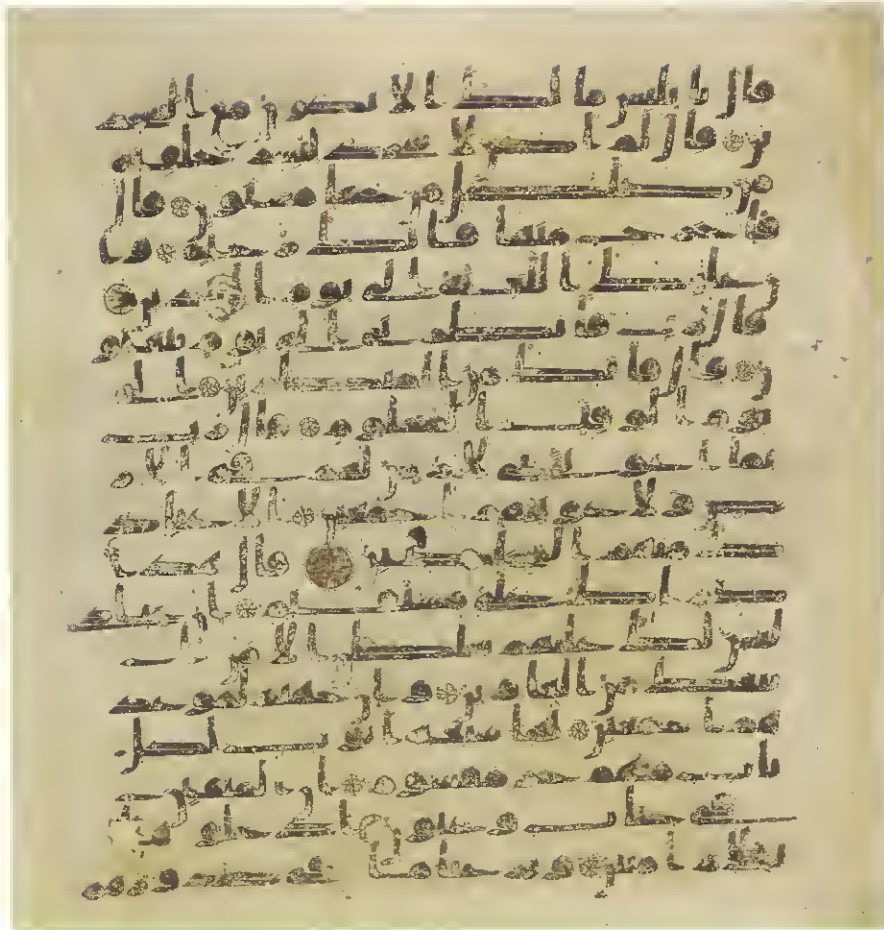 قال يابليس ما لك الا تكون مع السجد
ين قال لم اكن لاسجد لبشر خلقته
من صلصل من حما مسنون قال
فاخرج منها فانك رجيم وا
ن عليك اللعنة الى يوم الدين
قال رب فانظرني الى يوم يبعثو
ن قال فانك من المنظرين الى
يوم الوقت المعلوم قال رب
بما اغويتني لازينن لهم في الا
رض ولاغوينهم اجمعين الا عباد
ك منهم المخلصين قال هذا
صرط على مستقيم ان عبادي
ليس لك عليهم سلطن الا من ا
تبعك من الغاوين وان جهنم لموعد
هم اجمعين لها سبعة ابوب لكل
باب منهم جزء مقسوم ان المتقين
في جنت وعيون ادخلوها
بسلم امنين ونزعنا ما في صدورهم